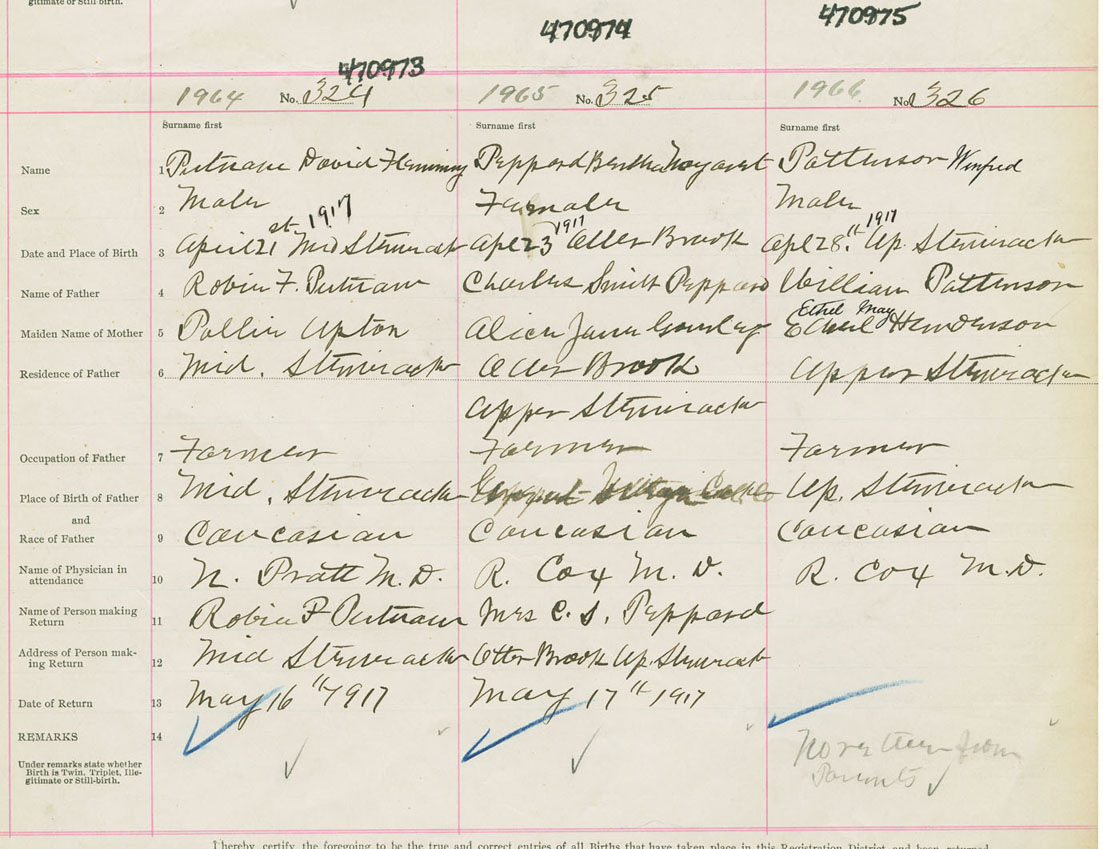 gitimate or Still-birth.
470973 470974 470975
1964 No. 324 1965 No. 325 1966 No. 326
Surname first Surname first Surname first
Name 1 Putnam David Flemming Peppard Bertha Margaret Patterson Winfred
Sex 2 Male Female Male
Date and Place of Birth 3 April 21st 1917 Mid Stewiacke Apl 23 1917 Otter Brook Apl 28th 1917 Up. Stewiacke
Name of Father 4 Robie F. Putnam Charles Smith Peppard William Patterson
Ethel May
Maiden Name of Mother 5 Upton Alice Jane Gourley Ethel Henderson
Residence of Father 6 Mid. Stewiacke Otter Brook Upper Stewiacke
Upper Stewiacke
Occupation of Father 7 Farmer Farmer Farmer
Place of Birth of Father 8 Mid. Stewiacke Up. Stewiacke
and
Race of Father 9 Caucasian Caucasian Caucasian
Name of Physician in attendance 10 N. Pratt M.D. R. Cox M.D. R. Cox M.D.
Name of Person making Return 11 Robie F Putnam Mrs C. S. Peppard
Address of Person mak-ing Return 12 Mid Stewiacke Otter Brook Up. Stewiack
Date of Return 13 May 16th 1917 May 17th 1917
REMARKS 14
No return from
Parents
Under remarks state whether
Birth is Twin, Triplet, Ille-
gitimate or Still-birth.
I hereby certify the foregoing to be the true and correct entries of all Births that have taken place in this Registration District, and been returned